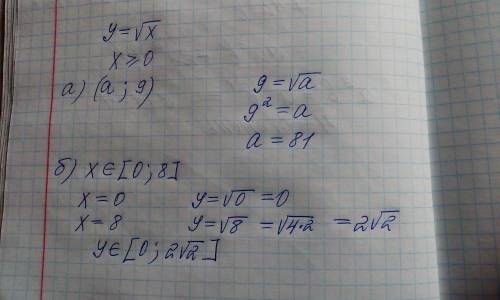 y=√x
x≥0
а) (a; 9)
9=√a
9²=a
a=81
б) x∈[0; 8]
x=0 y=√0=0
x=8 y=√8=√4·2=2√2
y∈[0; 2√2]